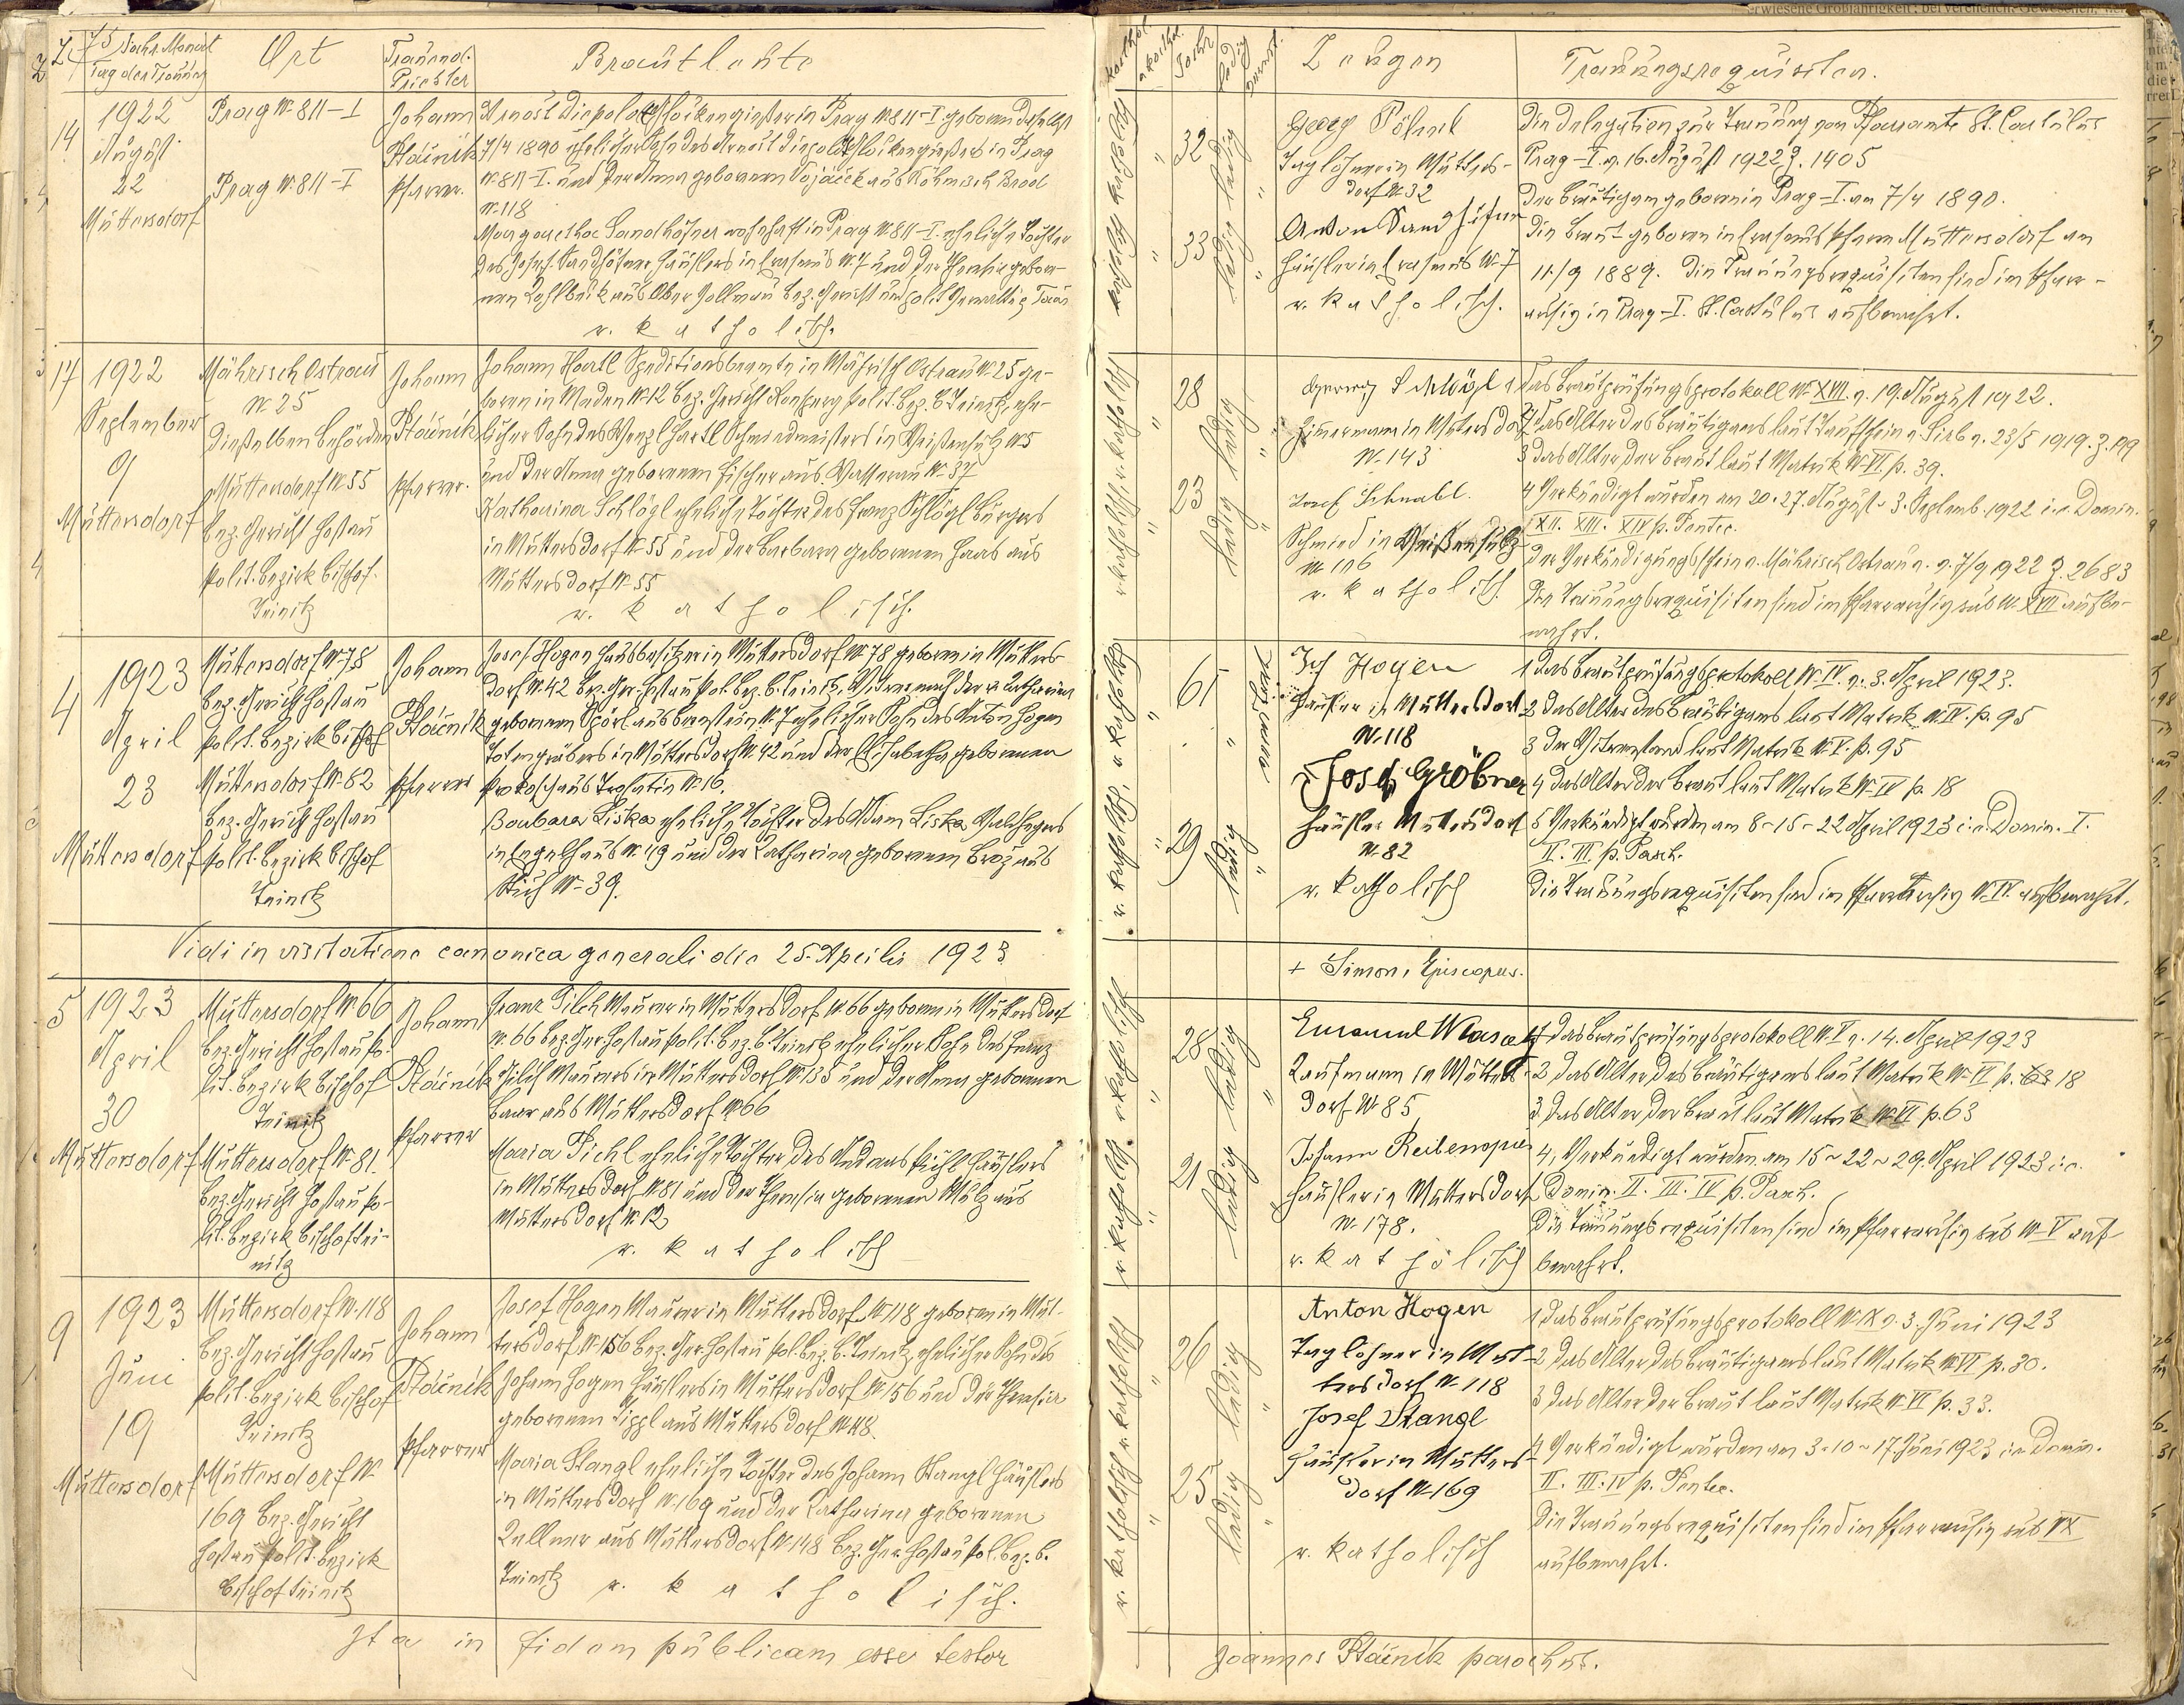 Z. Jahr, Monat Tag der Trauung
Ort
Trauend. Priester
Brautleute
14
1922
August
22
Muttersdorf
Prag N. 811–I
Prag N. 811–I
Johann
Ptáčník
Pfarrer.
Arnošt Diepold Glockengießer in Prag N. 811–I geboren daselbst
7/4 1890 ehelicher Sohn des Arnošt Diepold Glockengießers in Prag
N. 811–I. und der Anna geborenen Vojáček aus Böhmisch Brod
N. 118
Margaretha Sandhöfner wohnhaft in Prag N. 811–I. eheliche Tochter
des Josef Sandhöfner Häuslers in Erasmus N. 7 und der Theresia gebore-
nen
r. katholisch.
17
1922
September
9
Muttersdorf
Mährisch Ostrau
N. 25
Dieselben Behörden
Muttersdorf N. 55
bez. Gericht Hostau
polit. Bezirk Bischof-
Teinitz
Johann
Ptáčník
Pfarrer.
Johann Hartl Speditionsbeamte in Mährisch Ostrau N. 25 ge-
boren in Maden N. 12 bez. Gericht Ronsperg polit. bez. B. Teinitz, ehe-
licher Sohn des Wenzl Hartl Schmiedmeisters in Weißensulz N. 5
und der Anna geborenen Fischer aus Wasserau N. 37
Katharina Schlögl eheliche Tochter des Franz Schlögl Bürgers
in Muttersdorf N. 55 und der Barbara geborenen Haas aus
Muttersdorf N. 55
r. katholisch.
4
1923
April
23
Muttersdorf
Muttersdorf N. 78
bez. Gericht Hostau
polit. Bezirk Bischof
Muttersdorf N. 62
bez. Gericht Hostau
polit. Bezirk Bischof
Teinitz
Johann
Ptáčník
Pfarrer
Josef Hogen Hausbesitzer in Muttersdorf N. 78 geboren in Mutters-
dorf N. 42 bez. Ger. Hostau pol. bez. B. Teinitz, Witwer nach der Katharina
geborenen Spörl aus Bernstein N. 7 ehelicher Sohn des Anton Hogen
Totengräbers in Muttersdorf N. 42 und der Elisabetha geborenen
Prokosch aus N. 16.
Barbara Liska eheliche Tochter des Adam Liska
in N. 49 und der Katharina geborenen Broz aus
N. 39.
Vidi in visitatione canonica generali die 25. Aprilis 1923
5
1923
April
30
Muttersdorf
Muttersdorf N. 66
bez. Gericht Hostau po-
lit. Bezirk Bischof
Teinitz
Muttersdorf N. 81.
bez. Gericht Hostau po-
lit. Bezirk Bischoftei-
nitz
Johann
Ptáčník
Pfarrer
Franz Pilch Maurer in Muttersdorf N. 66 geboren in Muttersdorf
N. 66 bez. Ger. Hostau polit. bez. B. Teinitz ehelicher Sohn des Franz
Pilch Maurers in Muttersdorf N. 135 und der Anna geborenen
Baar aus Muttersdorf N. 66
Maria Pichl eheliche Tochter des Andreas Pichl Häuslers
in Muttersdorf N. 81 und der Theresia geborenen Molz aus
Muttersdorf N. 12
r. katholisch
9
1923
Juni
19
Muttersdorf
Muttersdorf N. 118
bez. Gericht Hostau
polit. Bezirk Bischof
Teinitz
Muttersdorf N.
169 bez. Gericht
Hostau polit. Bezirk
Bischofteinitz
Johann
Ptáčník
Pfarrer
Josef Hogen Maurer in Muttersdorf N. 118 geboren in Mut-
tersdorf N. 156 bez. Ger. Hostau pol. bez. B. Teinitz ehelicher Sohn des
Johann Hogen Häuslers in Muttersdorf N. 156 und der Theresia
geborenen Zippl aus Muttersdorf N. 48.
Maria Stangl eheliche Tochter des Johann Stangl Häuslers
in Muttersdorf N. 169 und der Katharina geborenen
Zellner aus Muttersdorf N. 148 bez. Ger. Hostau pol. bez. B.
Teinitz r. katholisch.
Ita in fidem publicam esse testor
kathol.
akathol.
Jahr
ledig
verwit.
Zeugen
Trauungsrequisiten.
r. katholisch r. katholisch
32 ledig
33 ledig
Georg
Taglöhner in Mutters-
dorf N. 32
Anton Sandhöfner
Häusler in Erasmus N. 7
r. katholisch.
Die Delegation zur Trauung vom Pfarramte St. Castulus
Prag–I. v. 16. August 1922 Z. 1405
Der Bräutigam geboren in Prag–I. am 7/4 1890.
Die Braut geboren in Erasmus Pfarre Muttersdorf am
11/9 1889. Die Trauungsrequisiten sind im Pfarr-
archiv in Prag–I. St. Castulus aufbewahrt.
r. katholisch r. katholisch
28 ledig
23 ledig
Georg Schlögl
Zimmermann in Muttersdorf
N. 143
Josef Schnabl.
Schmied in Weißensulz
N. 106
r. katholisch.
1 Das Brautprüfungsprotokoll N. XVII. v. 19. August 1922.
2 Das Alter des Bräutigams laut Taufschein v. Sirb v. 23/5 1919.
3 Das Alter der Braut laut Matrik N. VI. p. 39.
4 Verkündigt wurden am 20. 27. August 3. Septemb. 1922 i. e. Domin.
XII. XIII. XIV p. Pentec.
Der Verkündigungsschein v. Mährisch Ostrau v. 7/9 1922 Z. 2683
Die Trauungsrequisiten sind im Pfarrarchiv sub N. XVII aufbe-
wahrt.
r. katholisch, r. katholisch
61
29 ledig
Jos Hogen
Häusler in Muttersdorf
N. 118
Josef Gröbner
Häusler Muttersdorf
N. 82
r. katholisch
1 Das Brautprüfungsprotokoll N. IV. v. 3. April 1923.
2 Das Alter des Bräutigams laut Matrik N. IV. p. 95
3 Der Witwerstand laut Matrik N. V. p. 95
4 Das Alter der Braut laut Matrik N. IV p. 18
5 Verkündigt wurden am 8–15–22 April 1923 i. e. Domin. I.
II. III. p. Pasch.
Die Trauungsrequisiten sind im Pfarrarchiv N. IV. aufbewahrt.
+ Simon, Episcopus.
r. katholisch r. katholisch
28 ledig
21 ledig
Emanuel
Kaufmann in Mutters-
dorf N. 85
Johann
Häusler in Muttersdorf
N. 178.
r. katholisch
1 Das Brautprüfungsprotokoll N. V v. 14. April 1923
2 Das Alter des Bräutigams laut Matrik N. VI p. 18
3 Das Alter der Braut laut Matrik N. VI p. 63
4, Verkündigt wurden am 15 ~ 22 ~ 29. April 1923 i. e.
Domin. II. III. IV p. Pasch.
Die Trauungsrequisiten sind im Pfarrarchiv sub N. V auf-
bewahrt.
r. katholisch r. katholisch
26 ledig
25 ledig
Anton Hogen
Taglöhner in Mut-
tersdorf N. 118
Josef Stangl
Häusler in Mutters-
dorf N. 169
r. katholisch
1 Das Brautprüfungsprotokoll N. IX v. 3. Juni 1923
2 Das Alter des Bräutigams laut Matrik N. VI p. 30.
3 Das Alter der Braut laut Matrik N. VI p. 33.
4 Verkündigt wurden am 3–10–17. Juni 1923 i. e. Domin.
II. III. IV p. Pentec.
Die Trauungsrequisiten sind im Pfarrarchiv sub IX
aufbewahrt.
Joannes Ptáčník parochus.